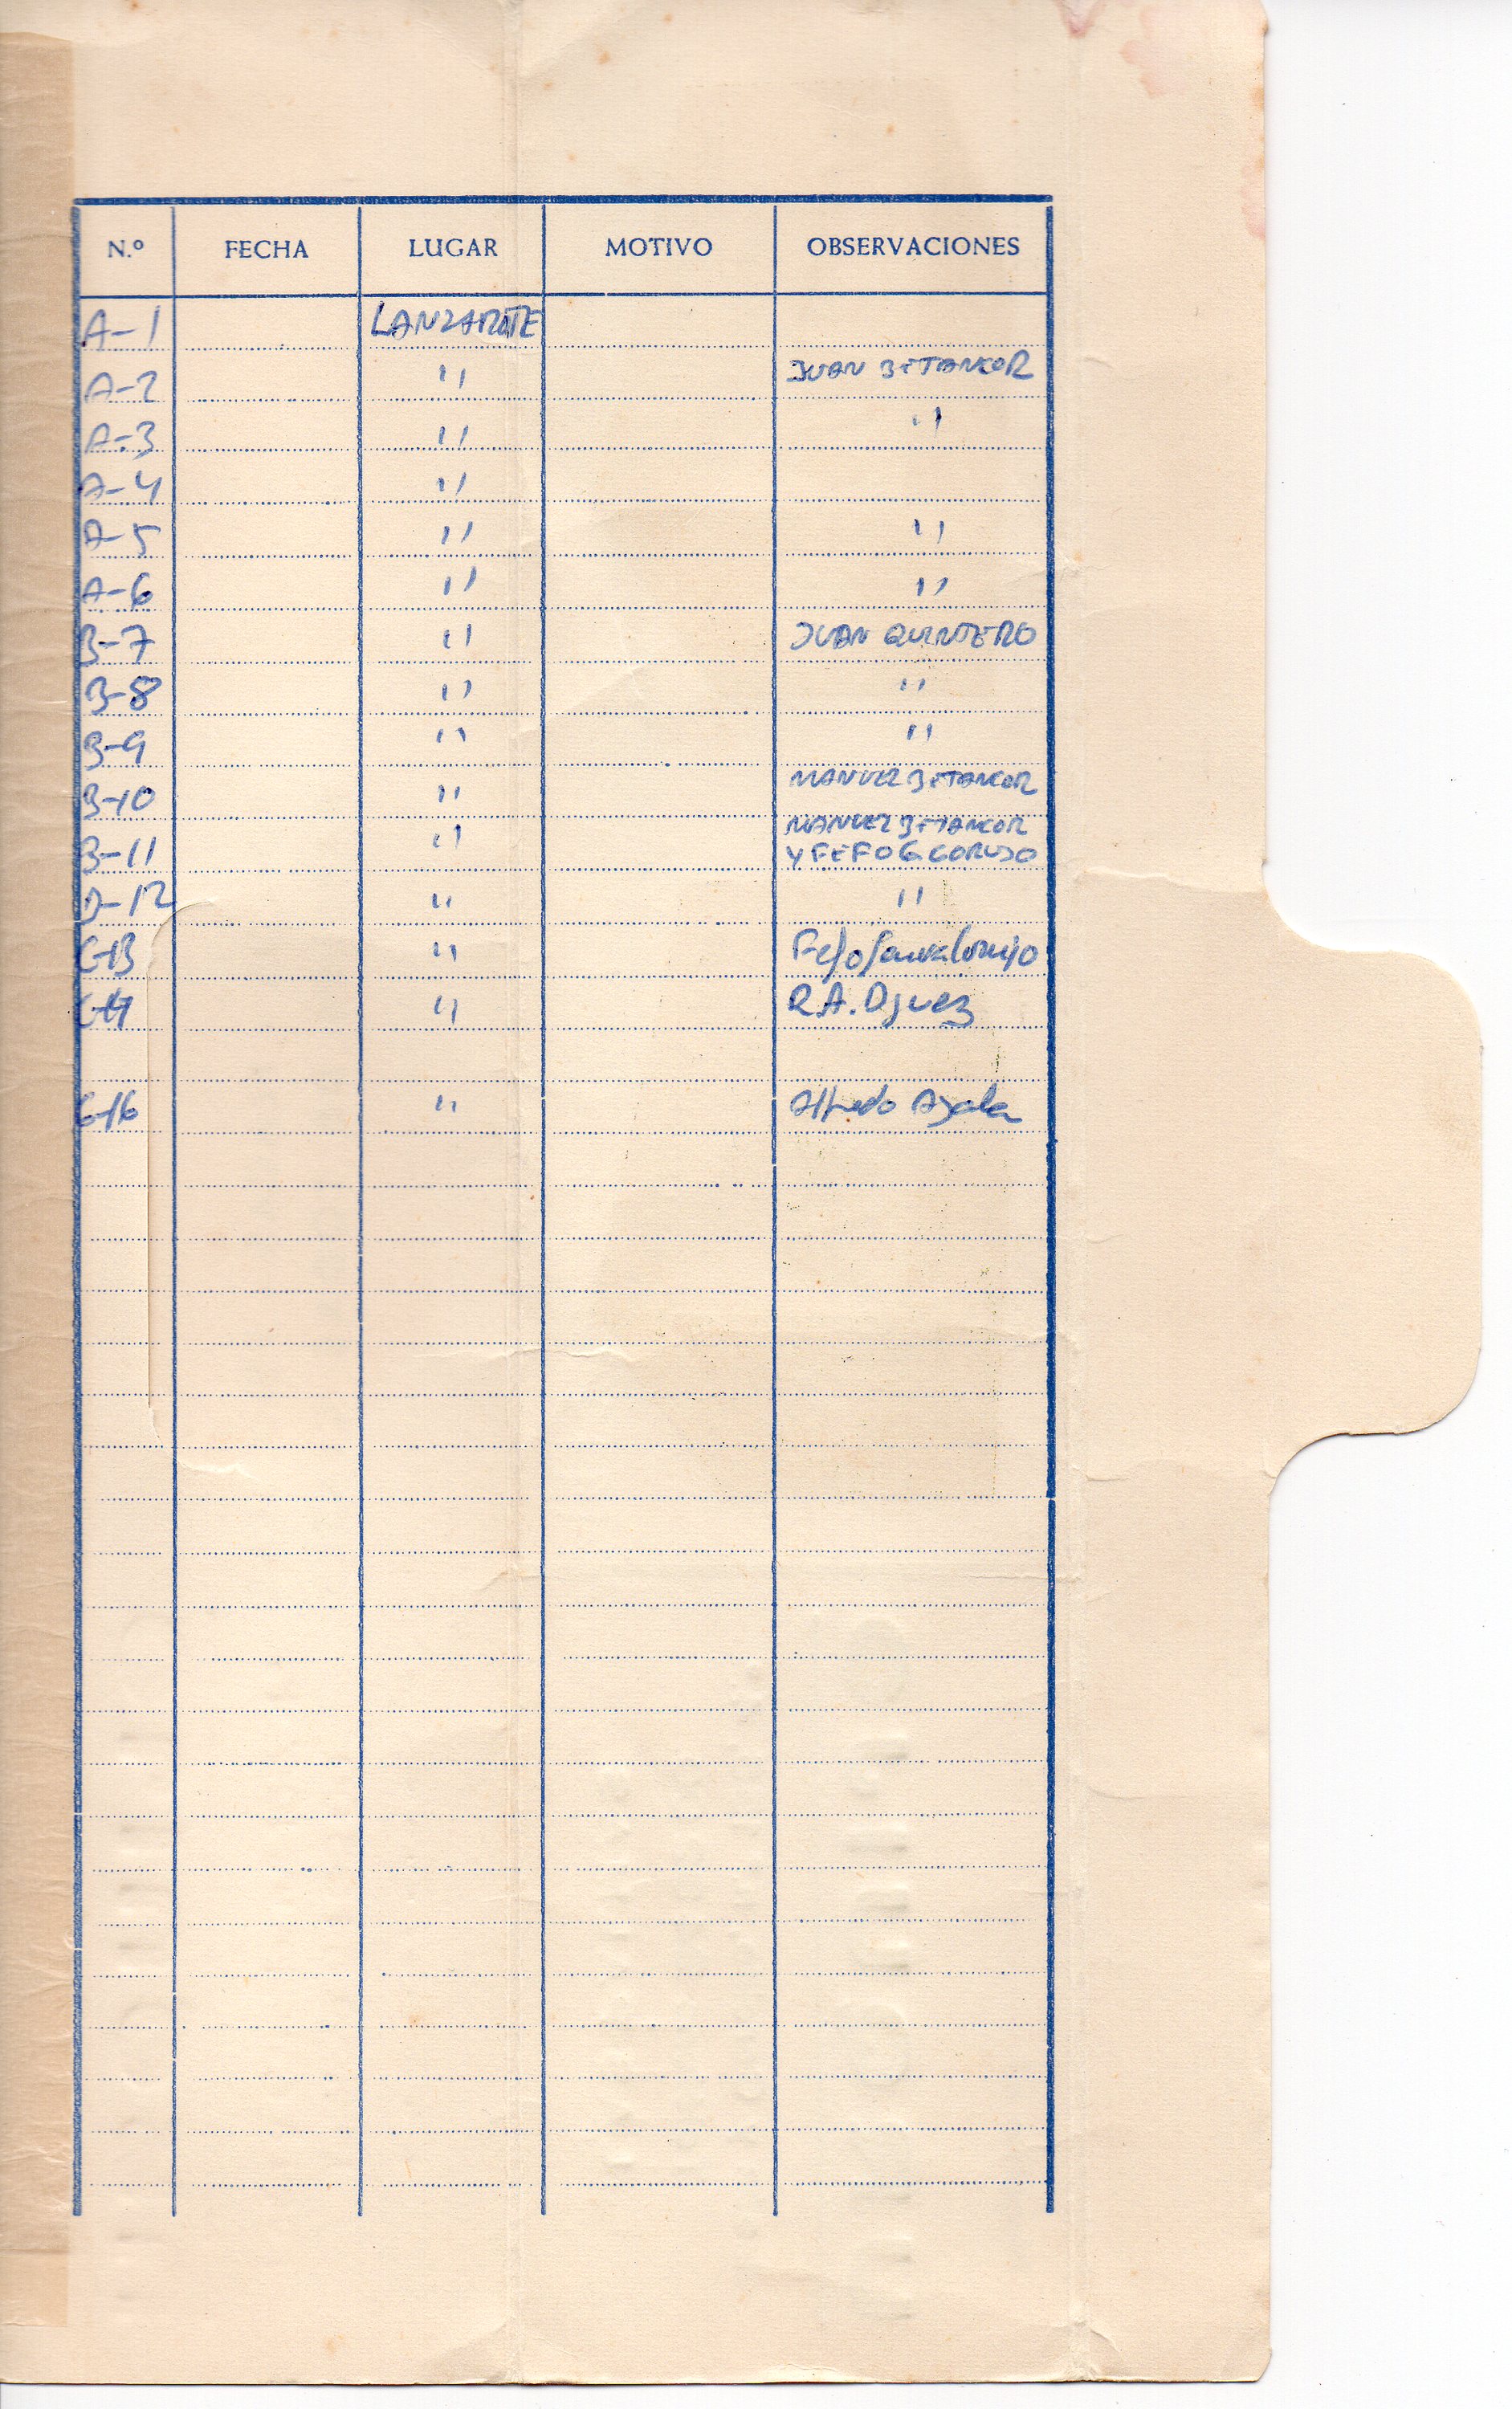 N.º FECHA LUGAR MOTIVO OBSERVACIONES
A-1 LANZAROTE
A-2 " JUAN BETANCOR
A-3 " "
A-4 "
A-5 " "
A-6 " "
B-7 " JUAN QUINTERO
B-8 " "
B-9 " "
B-10 " MANUEL BETANCOR
MANUEL BETANCOR
B-11 " Y FEFO G. CORUJO
D-12 " "
C-13 " Fefo Corujo
C-14 " R.A. Dguez
C-16 " Alfredo Ayala